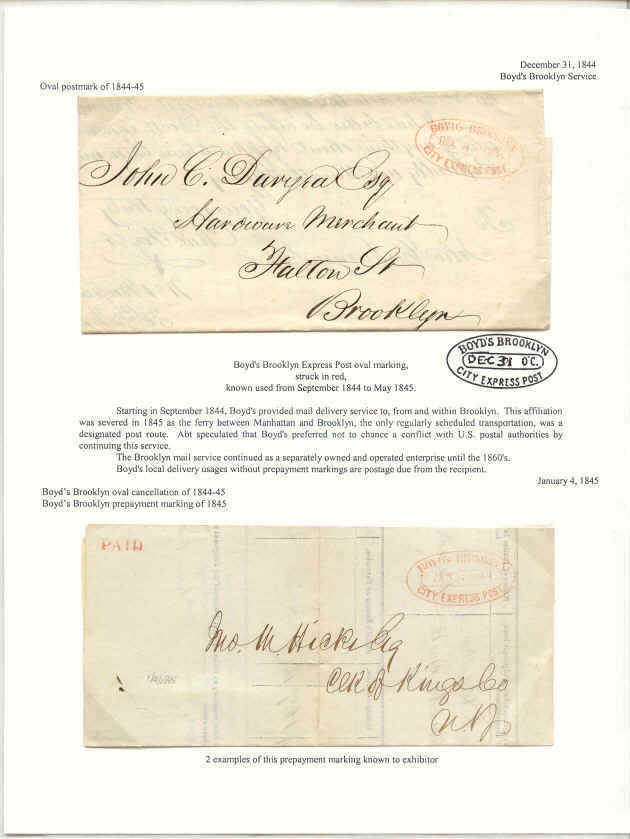 December 31, 1844
Boyd's Brooklyn Service
Oval postmark of 1844-45
BOYD'S BROOKLYN
CITY EXPRESS POST
John C. Esq
Hardware Merchant
Fulton St
Brooklyn
BOYD'S BROOKLYN
DEC 31 O'C.
CITY EXPRESS POST
Boyd's Brooklyn Express Post oval marking,
struck in red,
known used from September 1844 to May 1845.
Starting in September 1844, Boyd's provided mail delivery service to, from and within Brooklyn. This affiliation
was severed in 1845 as the ferry between Manhattan and Brooklyn, the only regularly scheduled transportation, was a
designated post route. Abt speculated that Boyd's preferred not to chance a conflict with U.S. postal authorities by
continuing this service.
The Brooklyn mail service continued as a separately owned and operated enterprise until the 1860's.
Boyd's local delivery usages without prepayment markings are postage due from the recipient.
January 4, 1845
Boyd's Brooklyn oval cancellation of 1844-45
Boyd's Brooklyn prepayment marking of 1845
PAID
BOYD'S BROOKLYN
CITY EXPRESS POST
Jno. M. Hicks Esq
Clk of Kings Co
N.Y.
2 examples of this prepayment marking known to exhibitor